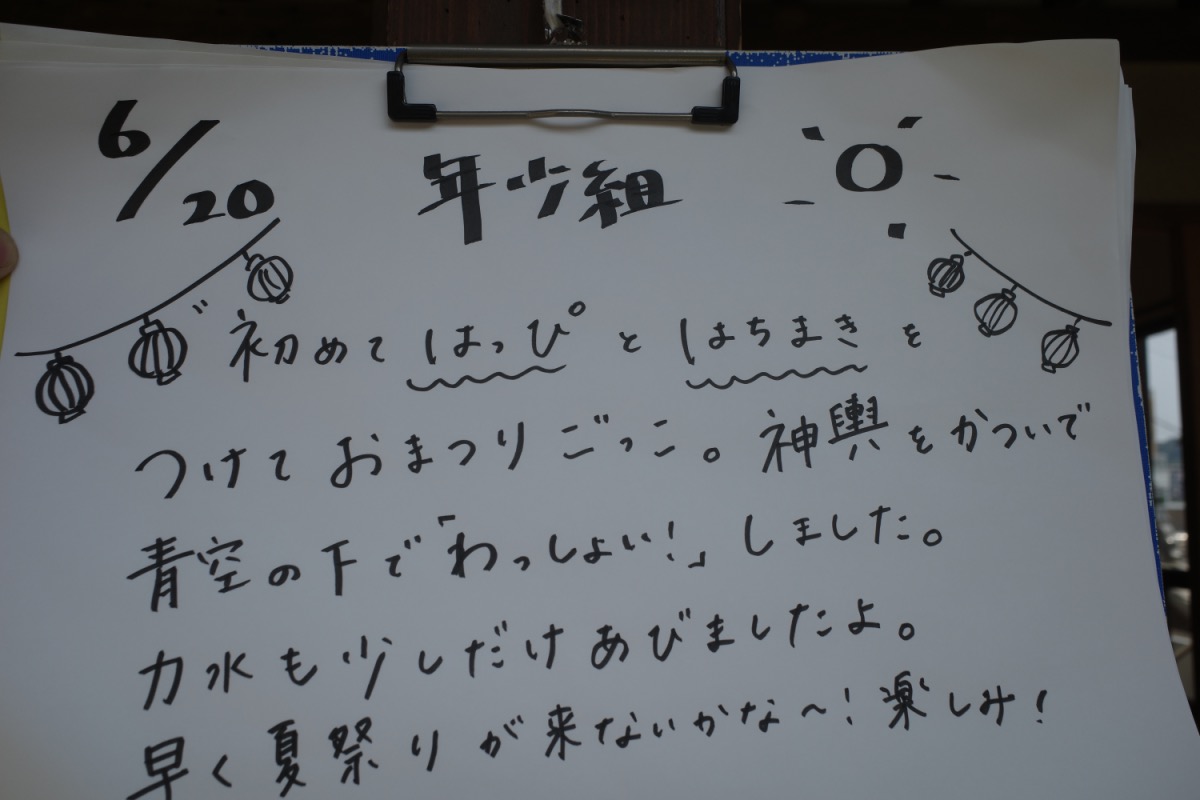 6/20
年少組
初めてはっぴとはちまきを
つけておまつりごっこ。神輿をかついで
青空の下で「わっしょい!」しました。
力水も少しだけあびましたよ。
早く夏祭りが来ないかな〜!楽しみ!